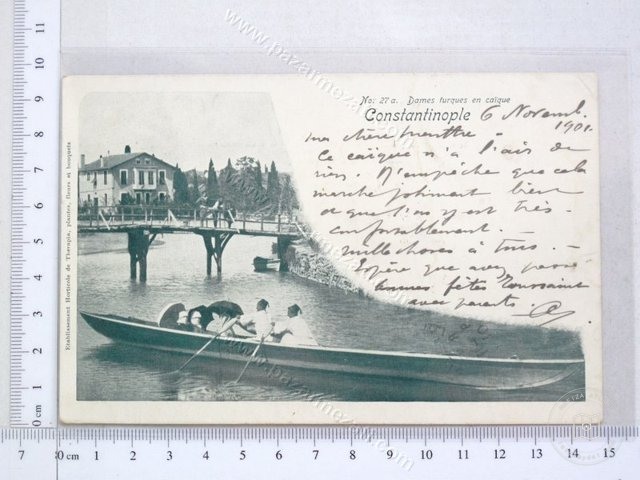 No: 27a. Dames turques en caïque
Constantinople 6 Novemb.
1901.
ma chère
Ce caïque n'a l'air de
rien. N'empêche que cela
marche joliment bien
et que l'on y est très
confortablement. —
mille choses à tous. —
Espère que avez passé
bonnes fêtes Toussaint
avec parents.
Etablissement Horticole de Therapia, plantes, fleurs et bouquets
www.pazarmezat.com
www.pazarmezat.com
11
10
9
8
7
6
5
4
3
2
1
0 cm
7 0 cm 1 2 3 4 5 6 7 8 9 10 11 12 13 14 15